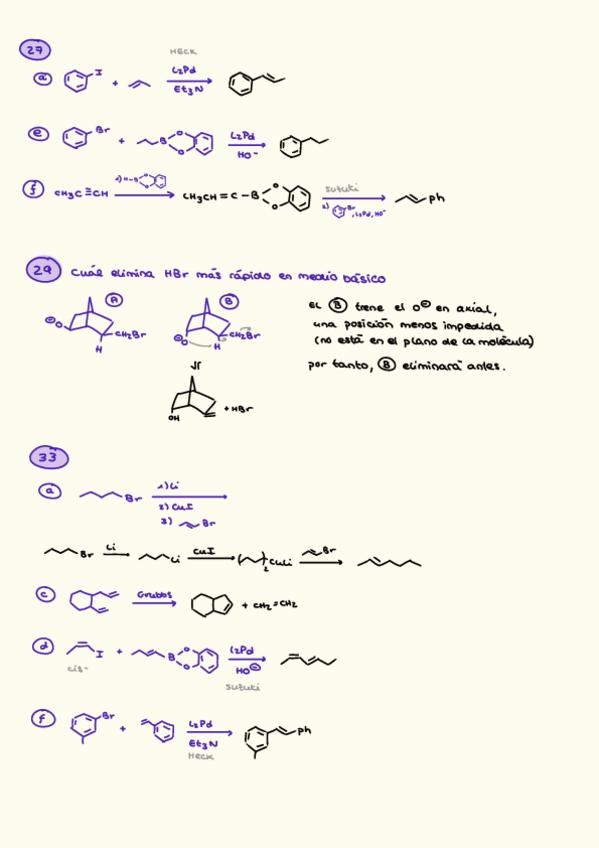 27
HECK
a I + L2Pd
Et3N
e Br + B O O L2Pd
HO⁻
f CH3C≡CH 1) H-B O O CH3CH=C-B O O suzuki ph
2) Br, L2Pd, HO⁻
29 Cuál elimina HBr más rápido en medio básico
A B
⊖O CH2Br H ⊖O CH2Br H
EL B tiene el O⊖ en axial,
una posición menos impedida
(no está en el plano de la molécula)
por tanto, B eliminará antes.
OH + HBr
33
a Br 1) Li
2) CuI
3) Br
Br Li Li CuI ( )2 CuLi Br
c Grubbs + CH2=CH2
d I + B O O L2Pd
cis- HO⊖
suzuki
f Br + L2Pd ph
Et3N
HECK